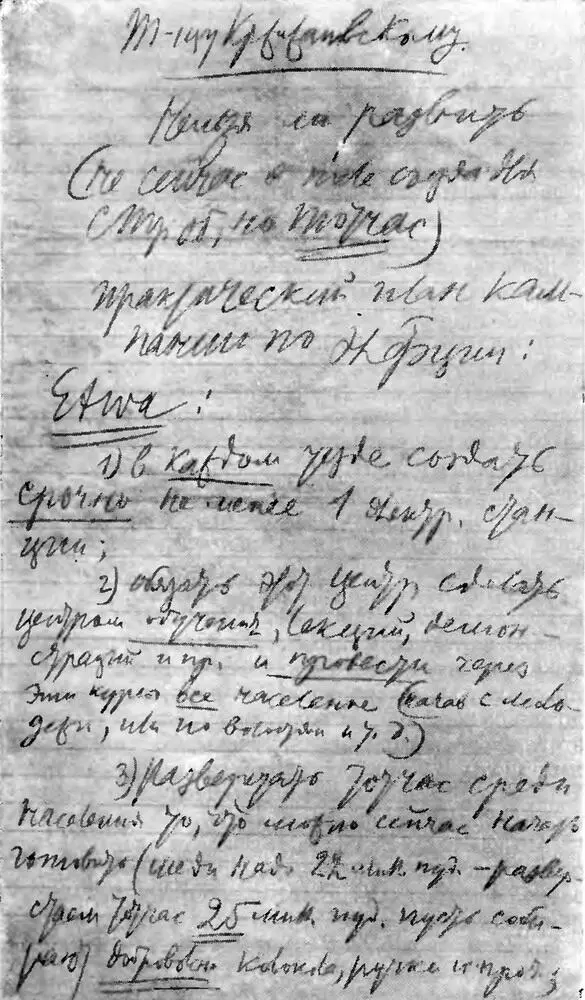 Т-щу Кржижановскому.
Нельзя ли развить
(не сейчас а после съезда для
но тотчас)
практический план кам-
пании по эл-фции:
Etwa:
1) в каждом уезде создать
срочно не менее 1 электр. стан-
ции;
2) обязать этот центр сделать
центром обучения, лекций, демон-
страций и пр. и провести через
эти курсы все население (начав с моло-
дежи, или по волостям и т. д.)
3) Разверстать тотчас среди
населения то, что можно сейчас начать
готовить (меди надо 2,2 мил. пуд. — развер-
стаем тотчас 2,5 мил. пуд. пусть соби-
рают добровольно колокола, ручки и проч.;